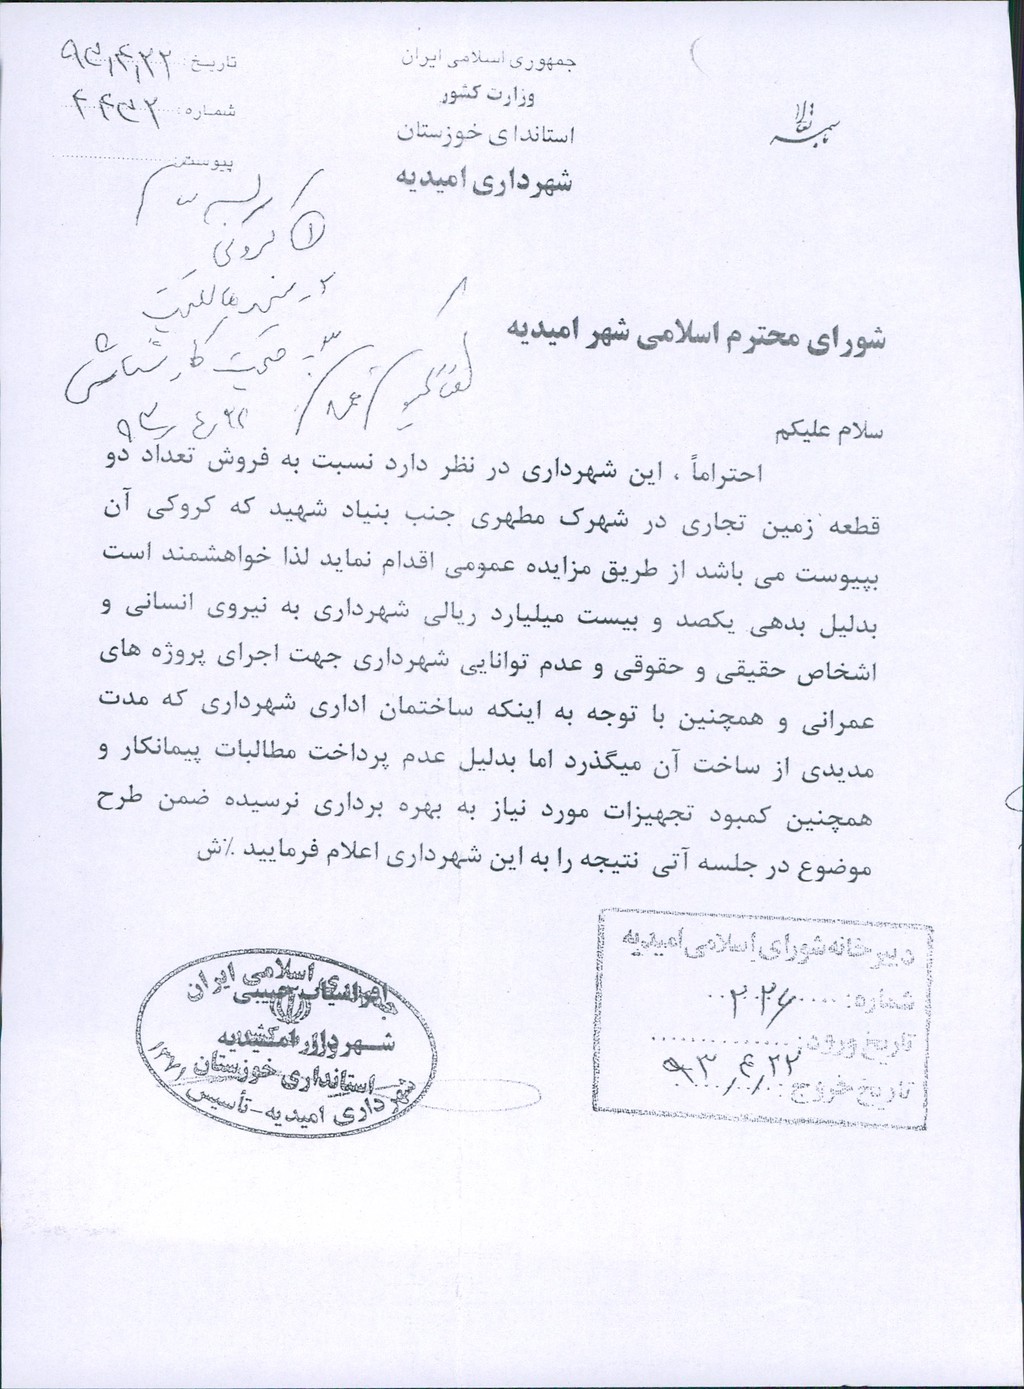 باسمه تعالی
جمهوری اسلامی ایران
وزارت کشور
استانداری خوزستان
شهرداری امیدیه
تاریخ: ۹۳,۴,۲۲
شماره: ۴۴۳۲
پیوست:
۱ کروکی
شورای محترم اسلامی شهر امیدیه
۹۳,۴,۲۲
سلام علیکم
احتراماً ، این شهرداری در نظر دارد نسبت به فروش تعداد دو
قطعه زمین تجاری در شهرک مطهری جنب بنیاد شهید که کروکی آن
بپیوست می باشد از طریق مزایده عمومی اقدام نماید لذا خواهشمند است
بدلیل بدهی یکصد و بیست میلیارد ریالی شهرداری به نیروی انسانی و
اشخاص حقیقی و حقوقی و عدم توانایی شهرداری جهت اجرای پروژه های
عمرانی و همچنین با توجه به اینکه ساختمان اداری شهرداری که مدت
مدیدی از ساخت آن میگذرد اما بدلیل عدم پرداخت مطالبات پیمانکار و
همچنین کمبود تجهیزات مورد نیاز به بهره برداری نرسیده ضمن طرح
موضوع در جلسه آتی نتیجه را به این شهرداری اعلام فرمایید ٪ش
دبیرخانه شورای اسلامی امیدیه
شماره: ۲۲۶
تاریخ ورود:
تاریخ خروج: ۹۳,۴,۲۲
جمهوری اسلامی ایران
حبیبی
شهردار امیدیه
استانداری خوزستان
شهرداری امیدیه-تأسیس